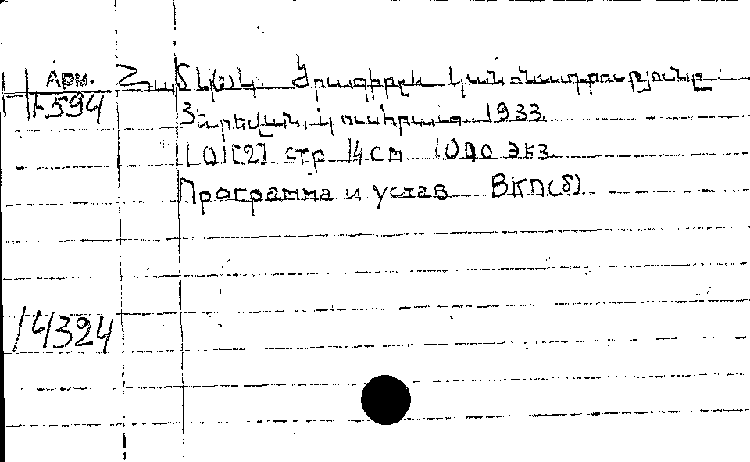 Арм.
1-594
Համկ(բ)կ Ծրագիրը և կանոնադրությունը
Յերեվան, կուսհրատ 1933.
101 [2] стр 14 см 1000 экз.
Программа и устав ВКП(б).
14324